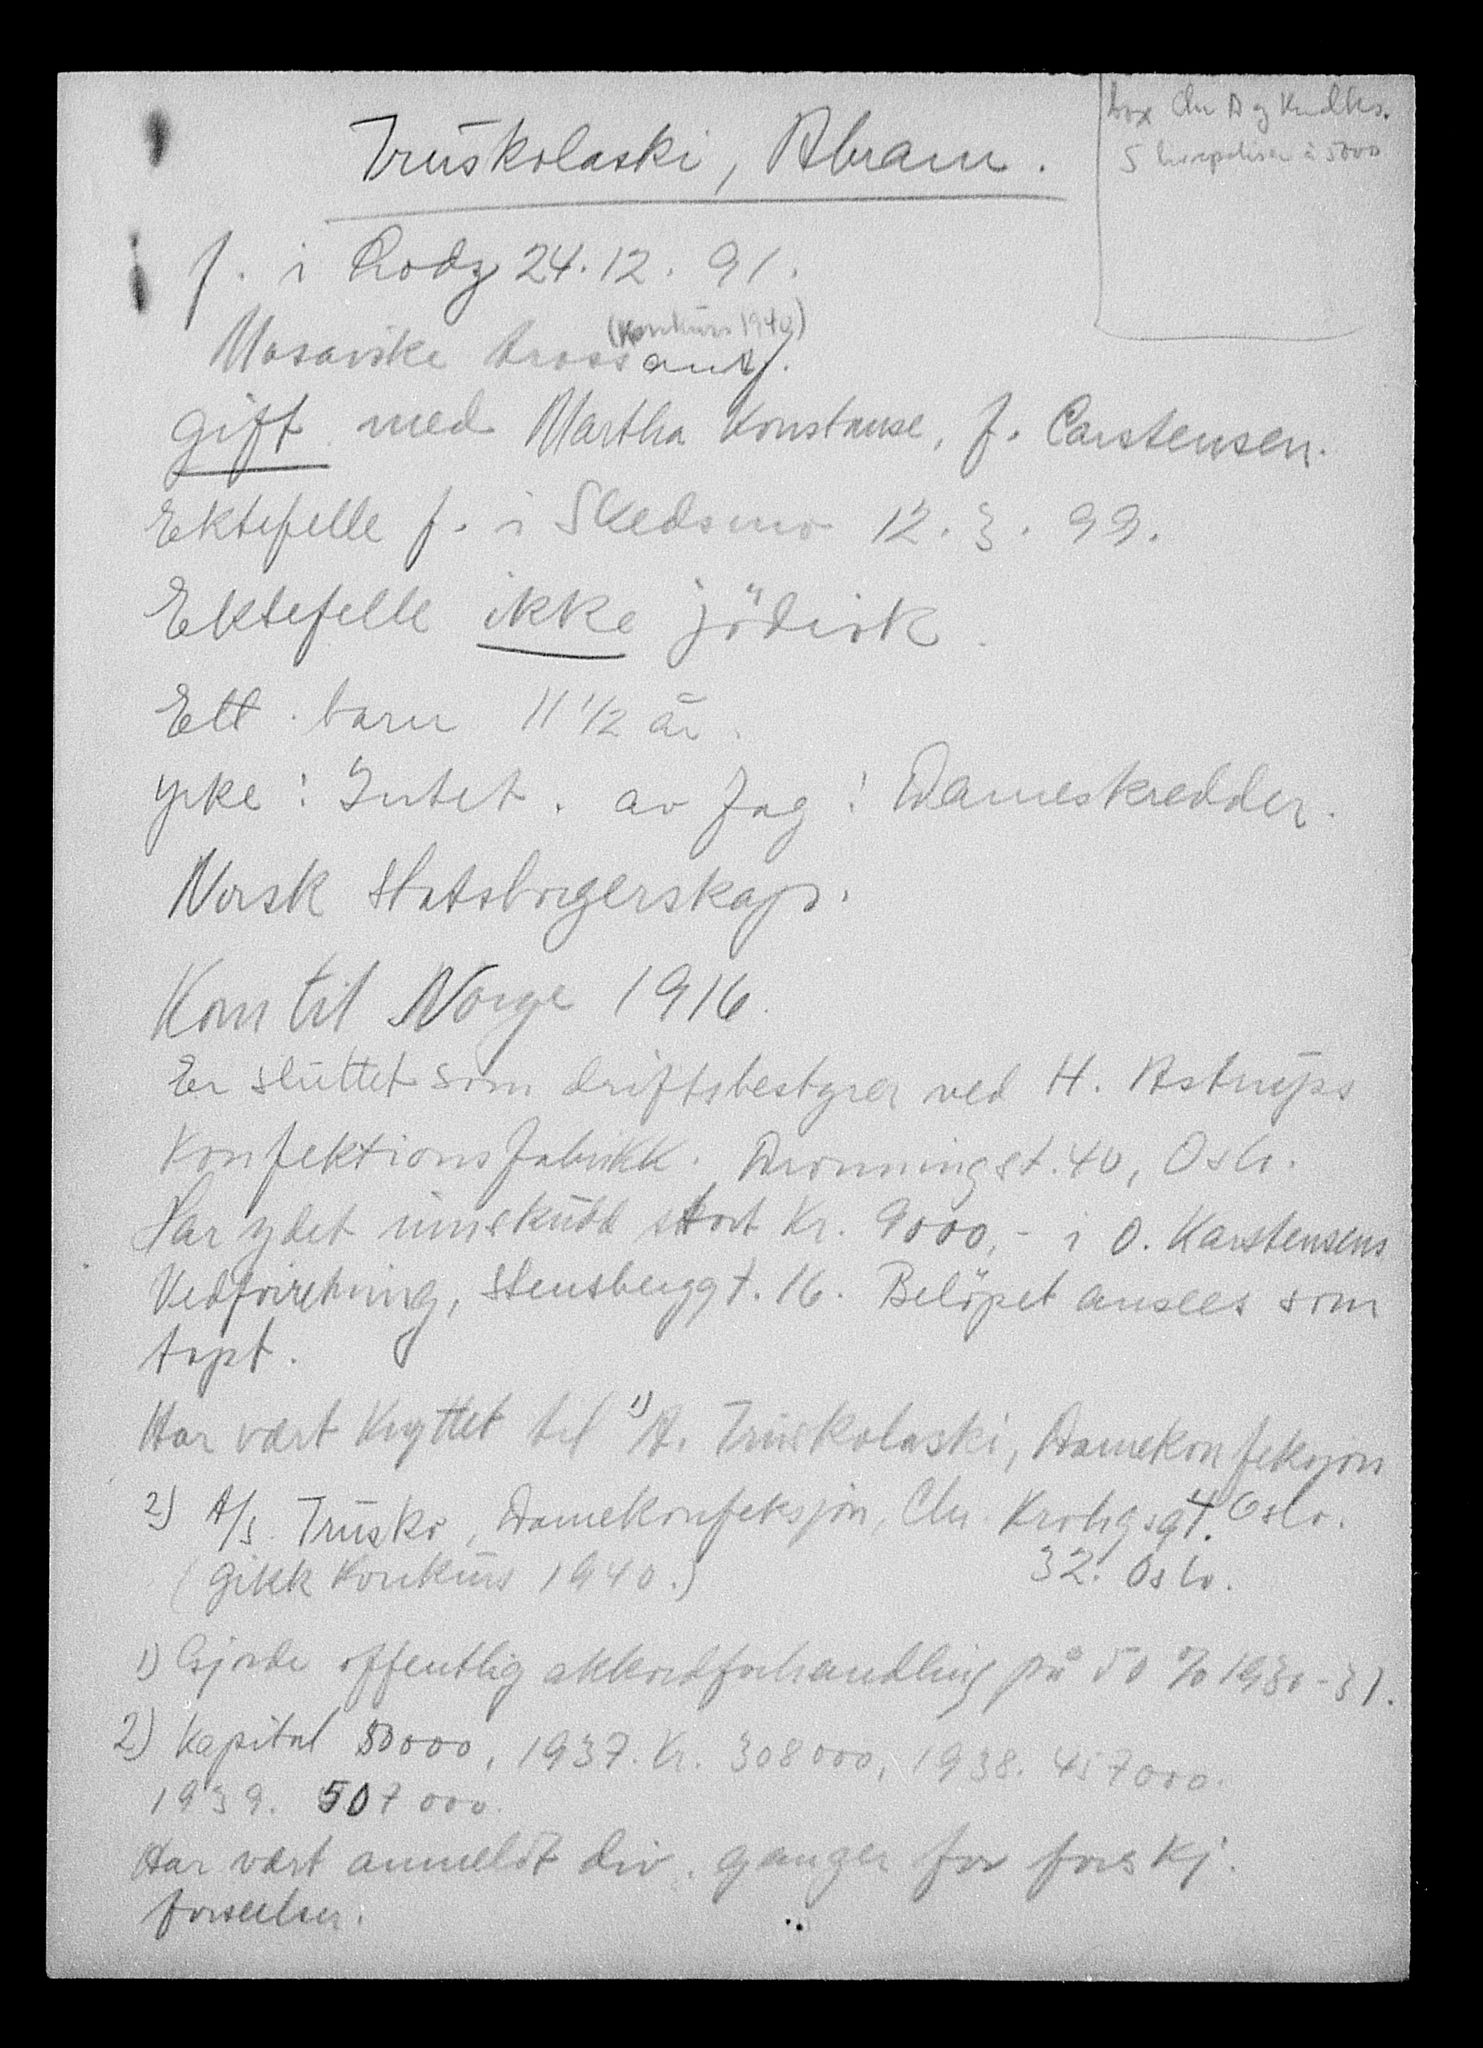 Truskolaski, Abram.
f. i Lodz 24.12.91.
(Konkurs 1940)
Mosaiske trossamf.
gift med Martha Konstanse, f. Carstensen.
Ektefelle f. i Skedsmo 12.3.99.
Ektefelle ikke jödisk.
Ett barn 11 1/2 år.
Yrke: Intet. av fag: Dameskredder.
Norsk statsborgerskap.
Kom til Norge 1916.
Er sluttet som driftsbestyrer ved H. Astrups
Konfektionsfabrikk. Dronningsgt. 40, Oslo.
Har ydet innskudd stort Kr. 9000,- i O. Karstensens
Vedforretning, Stensberggt. 16. Belöpet ansees som
tapt.
Har vært knyttet til 1) A. Truskolaski, Damekonfeksjon
2) A/S. Trusko, Damekonfeksjon, Chr. Krohgsgt. Oslo.
(gikk konkurs 1940.) 32. Oslo.
1) Gjorde offentlig akkordforhandling på 50 % 1930-31.
2) Kapital 50000, 1937. Kr. 308000, 1938. 457000.
1939. 507000.
Har vært anmeldt div. ganger for forskj.
forseelser.